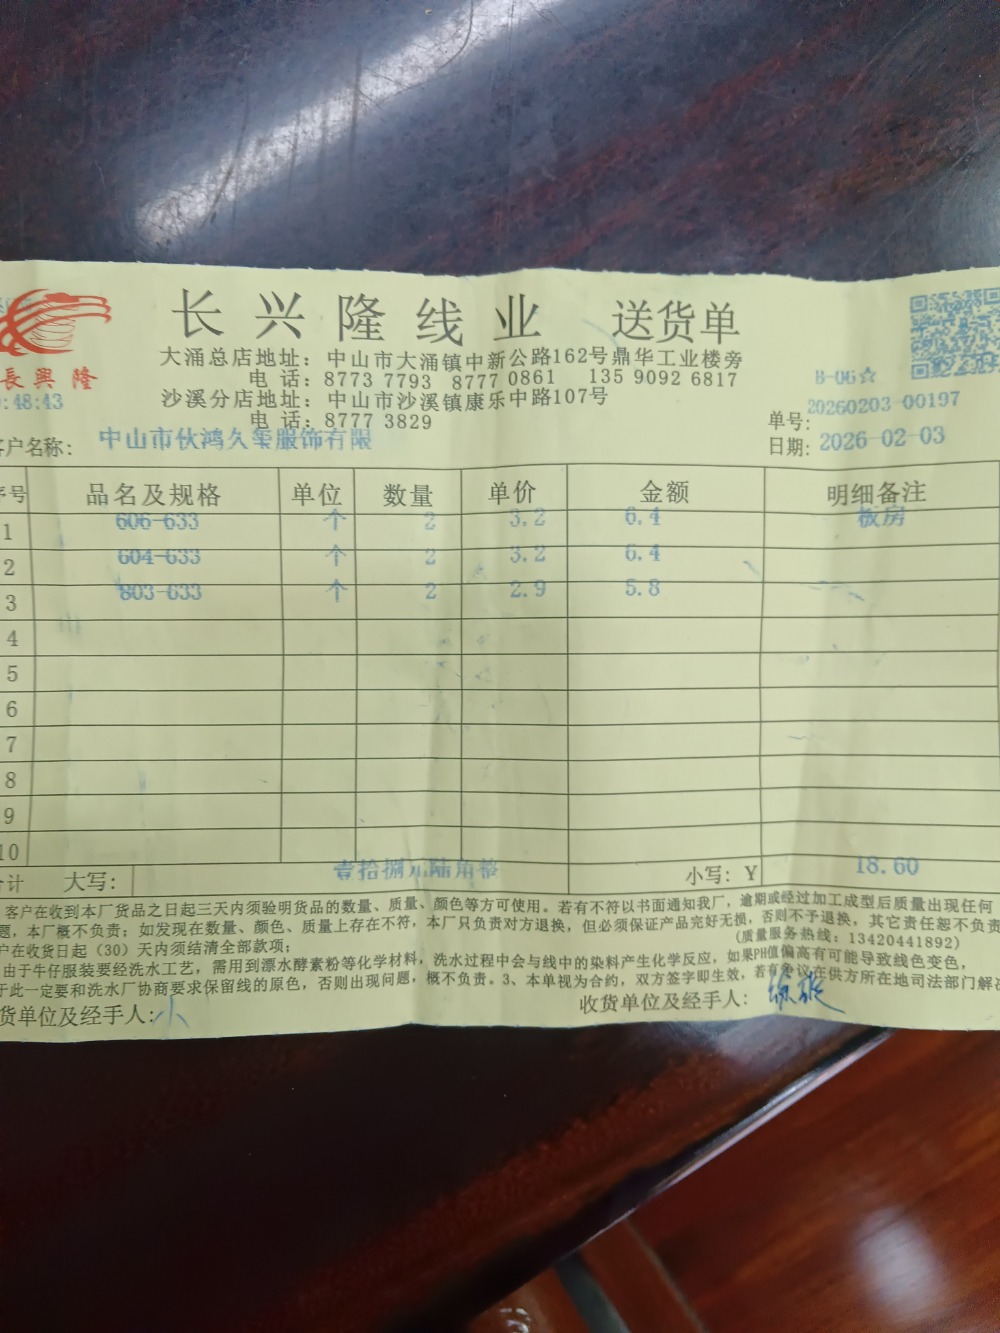 长兴隆线业 送货单
大涌总店地址：中山市大涌镇中新公路162号鼎华工业楼旁
电 话：8773 7793 8777 0861 135 9092 6817
沙溪分店地址：中山市沙溪镇康乐中路107号
电 话：8777 3829
長興隆
:48:43
B-06☆
单号：20260203-00197
日期：2026-02-03
客户名称：中山市伙鸿久玺服饰有限
序号 品名及规格 单位 数量 单价 金额 明细备注
1 606-633 个 2 3.2 6.4 板房
2 604-633 个 2 3.2 6.4
3 803-633 个 2 2.9 5.8
4
5
6
7
8
9
10
合计 大写：壹拾捌元陆角整 小写：Y 18.60
客户在收到本厂货品之日起三天内须验明货品的数量、质量、颜色等方可使用。若有不符以书面通知我厂，逾期或经过加工成型后质量出现任何
题，本厂概不负责；如发现在数量、颜色、质量上存在不符，本厂只负责对方退换，但必须保证产品完好无损，否则不予退换，其它责任恕不负责
(质量服务热线：13420441892)
户在收货日起（30）天内须结清全部款项；
由于牛仔服装要经洗水工艺，需用到漂水酵素粉等化学材料，洗水过程中会与线中的染料产生化学反应，如果PH值偏高有可能导致线色变色，
于此一定要和洗水厂协商要求保留线的原色，否则出现问题，概不负责。3、本单视为合约，双方签字即生效，若有争议在供方所在地司法部门解决
货单位及经手人：小
收货单位及经手人：